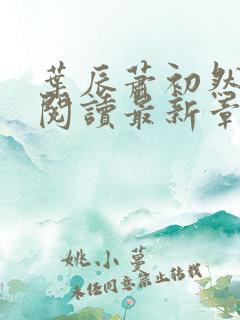 葉辰蕭初然
閱讀最新章
姚小蔓
未任同意禁止轉載